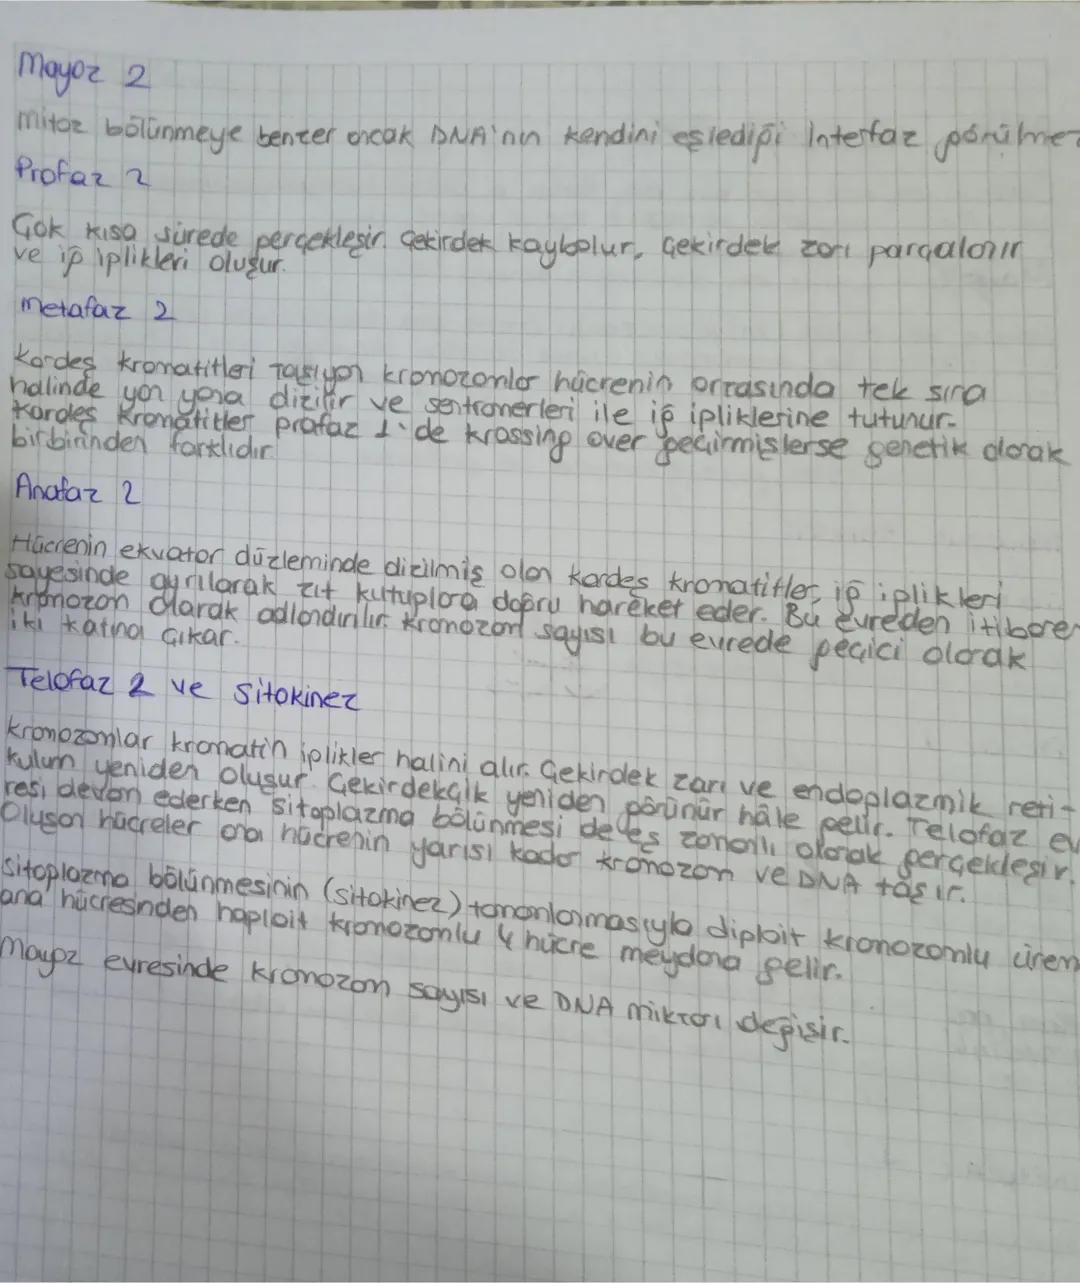 Mayoz 2
Mitoz bölünmeye benzer ancak DNA'nın kendini eşlediği İnterfaz görülmez
Profaz 2
Çok kısa sürede gerçekleşir çekirdek kaybolur, çekirdek zarı parçalanır
ve iğ iplikleri oluşur.
Metafaz 2
Kardeş kromatitleri taşıyan kromozomlar hücrenin ortasında tek sıra
halinde yan yana dizilir ve sentromerleri ile iğ ipliklerine tutunur.
Kardeş Kromatitler profaz 1'de krossing over geçirmişlerse genetik olarak
birbirinden farklıdır
Anafaz 2
Hücrenin ekvator düzleminde dizilmiş olan kardeş kromatitler, iğ iplikleri
sayesinde ayrılarak zıt kutuplara doğru hareket eder. Bu evreden itibare
kromozon olarak adlandırılır. kromozom sayısı bu evrede geçici olarak
iki katına çıkar.
Telofaz 2 ve Sitokinez
Kromozomlar kromatin iplikler halini alır. Çekirdek zarı ve endoplazmik reti-
kulum yeniden oluşur. Çekirdekçik yeniden görünür hâle gelir. Telofaz ev
resi devam ederken sitoplazma bölünmesi de eş zamanlı olarak gerçekleşir.
Oluşan hücreler ana hücrenin yarısı kadar kromozom ve DNA taşır.
Sitoplazma bölünmesinin (sitokinez) tamamlanmasıyla diploit kromozomluürem
ana hücresinden haploit kromozomlu 4 hücre meydana gelir.
Mayoz evresinde kromozom sayısı ve DNA miktarı değişir.